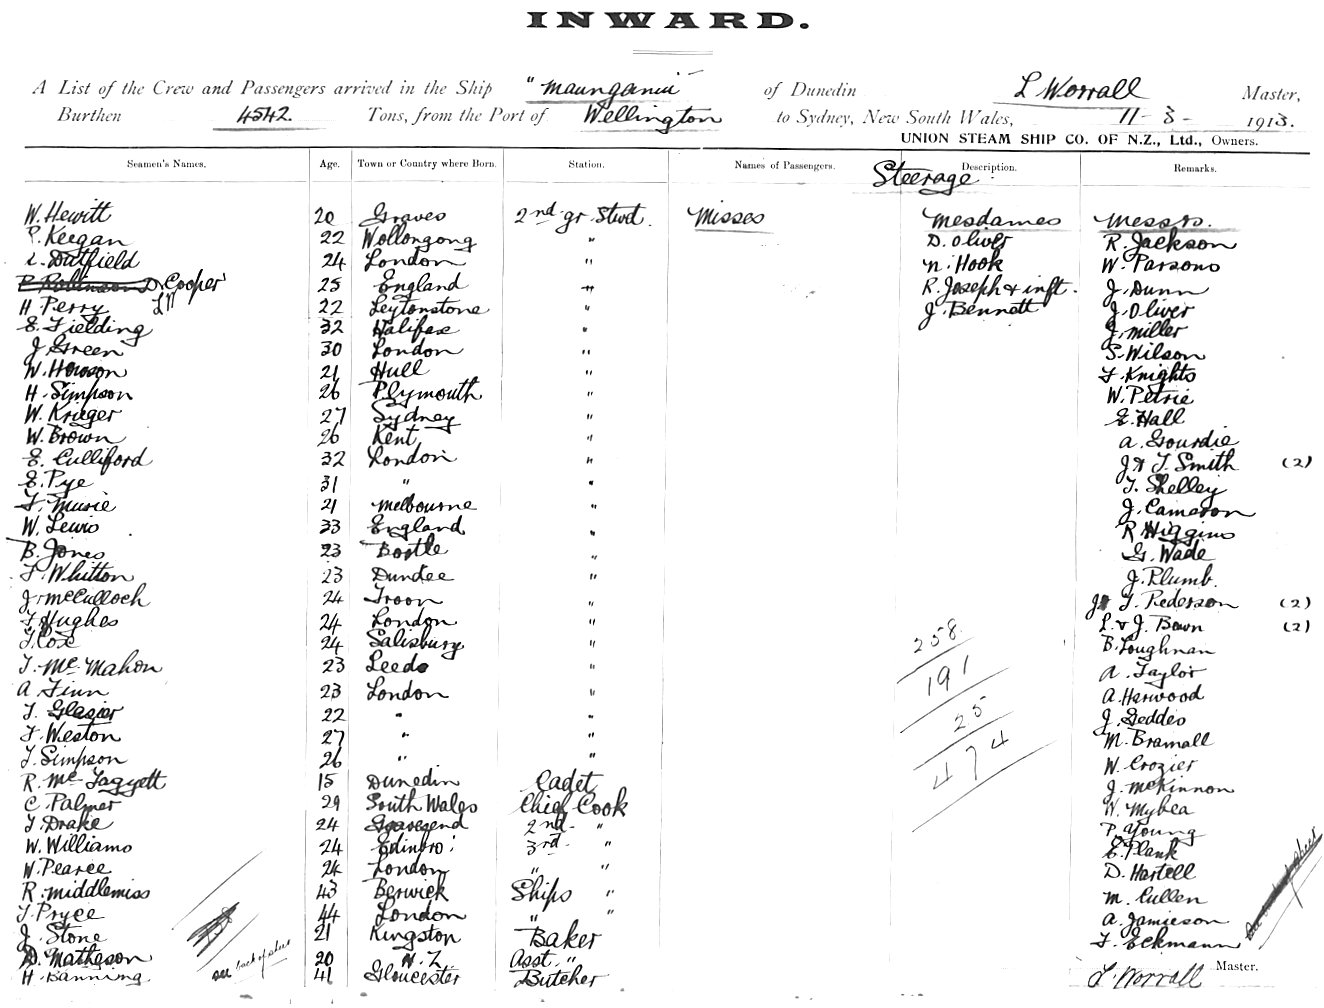 INWARD.
A List of the Crew and Passengers arrived in the Ship "Maunganui" of Dunedin L Worrall Master,
Burthen 4542. Tons, from the Port of Wellington to Sydney, New South Wales, 11-3-1913.
UNION STEAM SHIP CO. OF N.Z., Ltd., Owners.
Seamen's Names. Age. Town or Country where Born. Station. Names of Passengers. Description. Remarks.
Steerage
W. Hewitt 20 Graves 2nd gr. Stwd. Misses Mesdames Messrs.
P. Keegan 22 Wollongong " D. Oliver R. Jackson
L. Datfield 24 London " N. Hook W. Parsons
P Robinson D. Cooper 25 England " R. Joseph & inft. J. Dunn
H Perry 22 Leytonstone " J. Bennett J. Oliver
E. Fielding 32 Halifax " J. Miller
J. Green 30 London " S. Wilson
W. Howson 21 Hull " F. Knights
H. Simpson 26 Plymouth " W. Petrie
W. Kruger 27 Sydney " E. Hall
W. Brown 26 Kent " A. Gourdie
E. Culliford 32 London " J & T. Smith (2)
E. Pye 31 " " T. Shelley
F. Murie 21 Melbourne " J. Cameron
W. Lewis 33 England " R Higgins
B. Jones 23 Bootle " G. Wade
F. Whitton 23 Dundee " J. Plumb.
J. McCulloch 24 Troon " J & T. Pederson (2)
F Hughes 24 London " L. & J. Bown (2)
T. Cox 24 Salisbury " 258. B. Loughnan
T. McMahon 23 Leeds " 191 A. Taylor
A Finn 23 London " A. Harwood
T. Glasier 22 " " 25 J. Geddes
F. Weston 27 " " 474 M. Bramall
T. Simpson 26 " " W. Crozier
R. McTaggett 15 Dunedin Cadet J. McKinnon
C. Palmer 29 South Wales Chief Cook W. Mybea
T. Drake 24 Gravesend 2nd " P. Young
W. Williams 24 Edinbro' 3rd " E. Plank
W. Pearce 24 London " " D. Hartell
R. Middlemiss 43 Berwick Ships " M. Cullen
T. Pryce 44 London " " A. Jamieson
J. Stone 21 Kingston Baker F. Eckmann
D. Matheson 20 N.Z Asst. "
see back of sheet
H. Banning 41 Gloucester Butcher L Worrall Master.